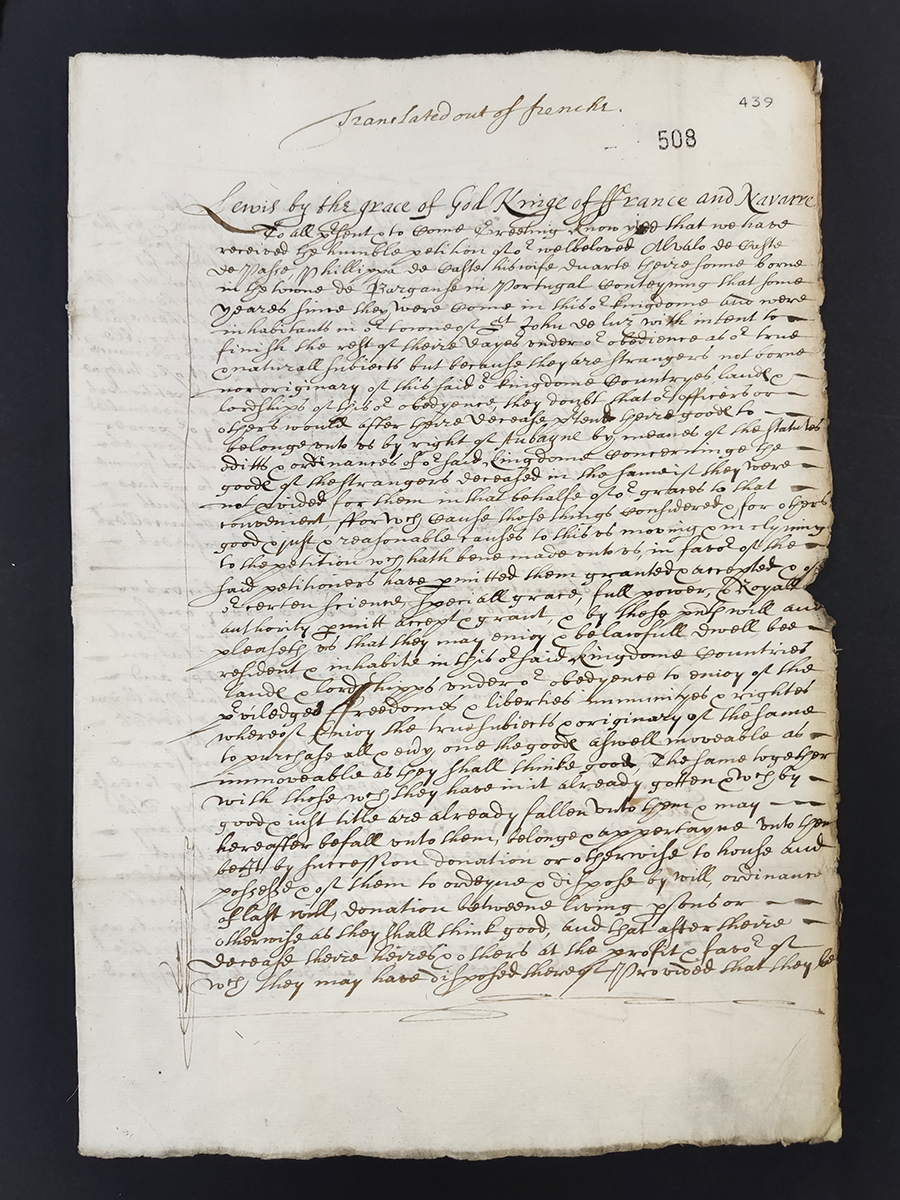 439
Translated out of frenche.
508
Lewis by the grace of God Kinge of ffrance and Navarre
To all p̱sent & to Come Greeting know yee that we have
received the humble petition of or welbeloved Alvalo de Caste
de Passe, Phillippa de Castes his wife, duarte theire sonne borne
in the towne de Barganse in Portugal Conteyning that some
yeares since they were Come in this or kingdome and were
inhabitants in or towne of St John de luz with intent to
finish the rest of theire dayes under or obedience as or true
& naturall subiects but because they are strangers not borne
nor originary of this said or kingdome Countryes landes &
lordships of this or obedyence, they doubt that or officers or
others would after theire decease, p̱tend theire goods to
belonge unto us by right of Aubayne by meanes of the statutes
edits & ordinances of or said kingdome Concerninge the
goods of the strangers deceased in the same if they were
not p̱vided for them in that behalfe of or graces to that
convenient ffor wch Cause those things Considered & for others
good & just & reasonable causes to this us moving & inclyning
to the petition wch hath bene made unto us, in favor of the
said petitioners have p̱mitted them granted & accepted & of
or certen science, speciall grace, full power, & Royall
authority p̱mitt accept & grant, & by these p̱nts will and
pleaseth us that they may enioy & be lawfull dwell bee
resident & inhabite in this or said kingdome Countries
landes & lordshipps under or obedyence to enioy of the
priviledges ffreedomes & liberties immunityes & rightes
whereof enioy the true subiects & originary of the same
to purchase all & evy one the goods aswell moveable as
immoveable as they shall thinke good The same together
with those wch they have in it already gotten & wch by
good & iust title are already fallen unto them & may
hereafter befall unto them, belonge & appertayne unto them
be it by succession donation or otherwise to house and
possesse & of them to ordeyne & dispose by will, ordinance
of last will, donation betweene living p̱sons or
otherwise as they shall think good, and that after theire
decease theire heires & others at the profit & favor of
wch they may have disposed thereof Provided that they be